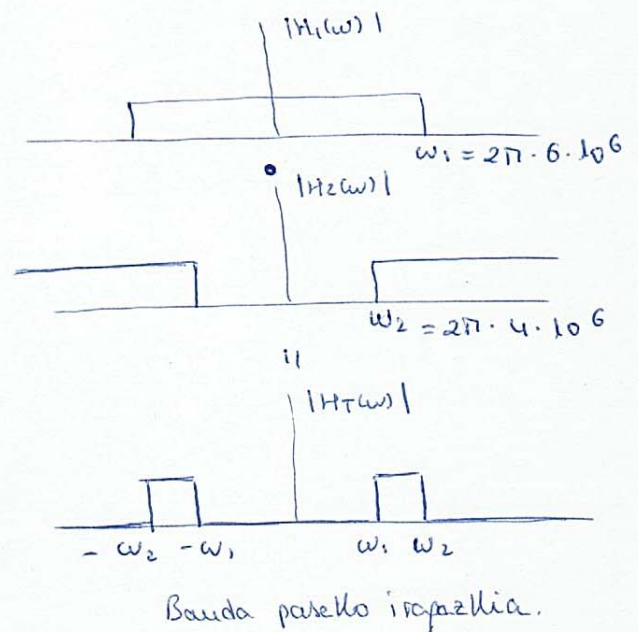 |H₁(ω)|
ω₁ = 2π · 6 · 10⁶
•
|H₂(ω)|
ω₂ = 2π · 4 · 10⁶
||
|H_T(ω)|
- ω₂ -ω₁ ω₁ ω₂
Banda paseko irapazkia.